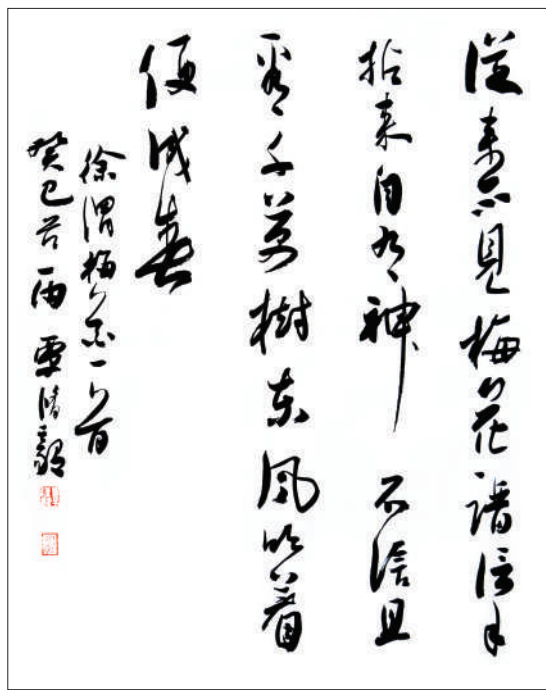 從来不見梅花譜信手
拈来自有神 不信且
看千萬樹东風吹着
便成春
徐渭梅花一首
癸巳谷雨